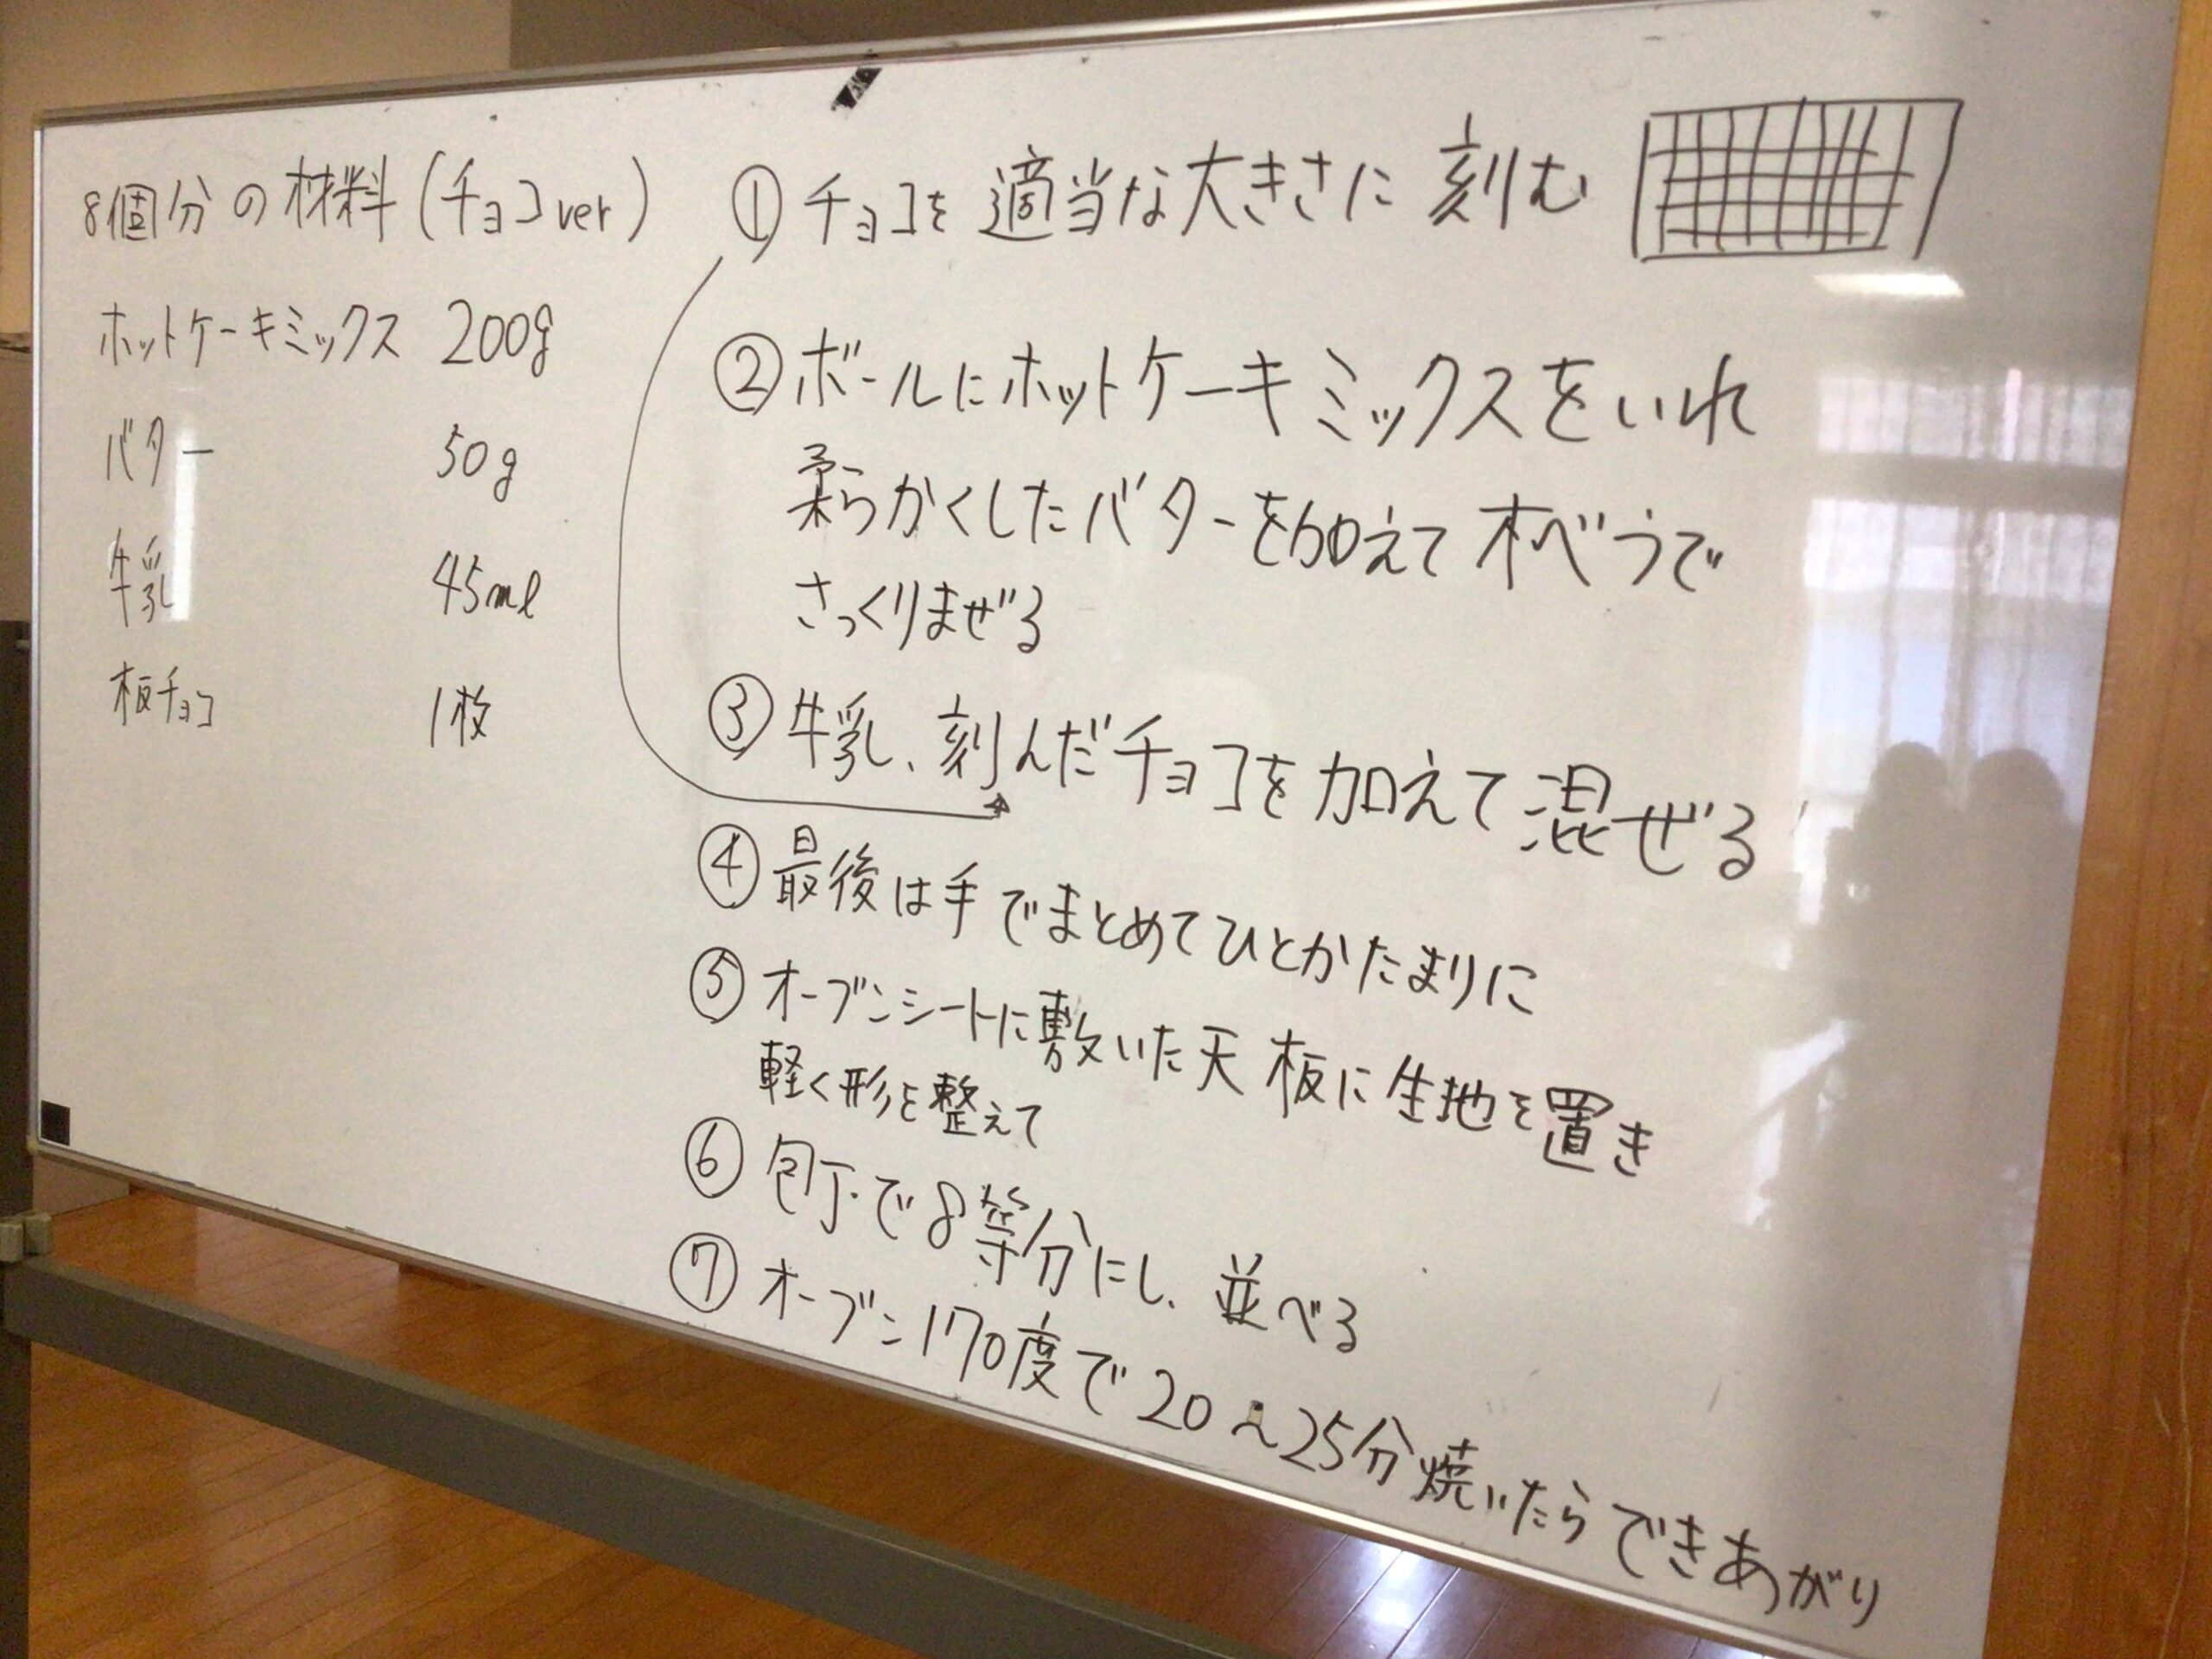 8個分の材料(チョコver)
ホットケーキミックス 200g
バター 50g
牛乳 45ml
板チョコ 1枚
① チョコを適当な大きさに刻む
② ボールにホットケーキミックスをいれ
柔らかくしたバターを加えて木べらで
さっくりまぜる
③ 牛乳、刻んだチョコを加えて混ぜる
④ 最後は手でまとめてひとかたまりに
⑤ オーブンシートに敷いた天板に生地を置き
軽く形を整えて
⑥ 包丁で8等分にし、並べる
⑦ オーブン170度で20〜25分焼いたらできあがり